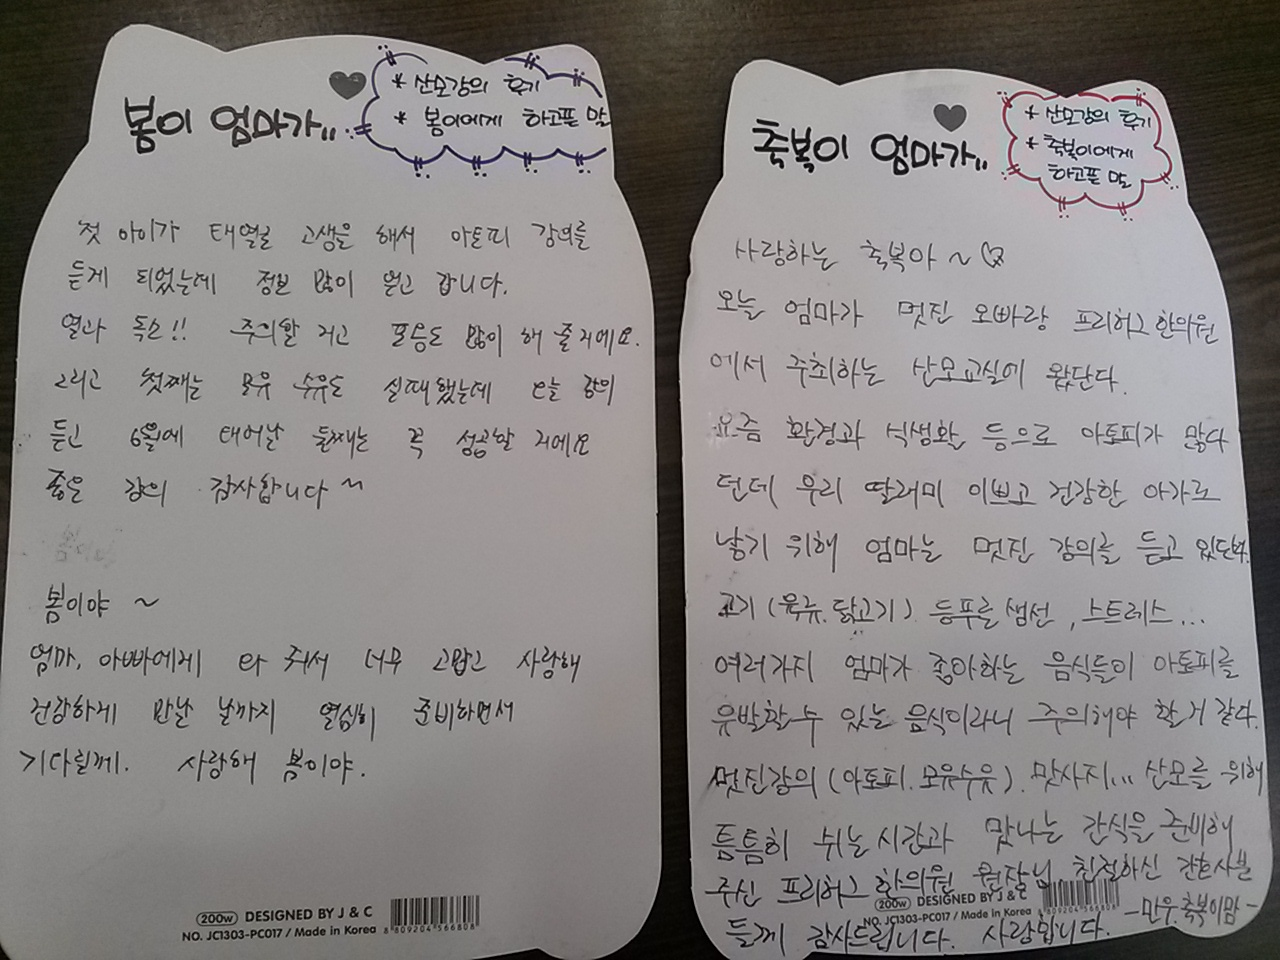 봄이 엄마가..
* 산모강의 후기
* 봄이에게 하고픈 말
첫 아이가 태열로 고생을 해서 아토피 강의를
듣게 되었는데 정보 많이 얻고 갑니다.
열과 독소!! 주의할 거고 포옹도 많이 해 줄거에요.
그리고 첫째는 모유 수유도 실패했는데 오늘 강의
듣고 6월에 태어날 둘째는 꼭 성공할 거에요
좋은 강의 감사합니다~
봄이야 ~
엄마, 아빠에게 와 줘서 너무 고맙고 사랑해
건강하게 만날 날까지 열심히 준비하면서
기다릴께. 사랑해 봄이야.
200w DESIGNED BY J & C
NO. JC1303-PC017 / Made in Korea
8 809204 566808
축복이 엄마가..
* 산모강의 후기
* 축복이에게
하고픈 말
사랑하는 축복아 ~ ♡
오늘 엄마가 멋진 오빠랑 프리허그한의원
에서 주최하는 산모교실에 왔단다.
요즘 환경과 식생활 등으로 아토피가 많다
던데 우리 딸래미 이쁘고 건강한 아가로
낳기 위해 엄마는 멋진 강의를 듣고 있단다.
고기(육류.닭고기). 등푸른 생선, 스트레스...
여러가지 엄마가 좋아하는 음식들이 아토피를
유발할 수 있는 음식이라니 주의해야 할 거 같다.
멋진강의(아토피.모유수유). 맛사지... 산모를 위해
틈틈히 쉬는 시간과 맛나는 간식을 준비해
주신 프리허그한의원 원장님, 친절하신 간호사분
들께 감사드립니다. 사랑합니다. -만우.축복이맘-
200w DESIGNED BY J & C
NO. JC1303-PC017 / Made in Korea
8 809204 566808